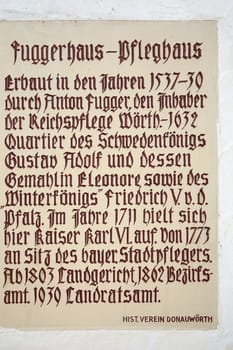 Fuggerhaus-Pfleghaus
Erbaut in den Jahren 1537-39
durch Anton Fugger, den Inhaber
der Reichspflege Wörth.-1632
Quartier des Schwedenkönigs
Gustav Adolf und dessen
Gemahlin Eleonore, sowie des
„Winterkönigs" Friedrich V. v. d.
Pfalz. Im Jahre 1711 hielt sich
hier Kaiser Karl VI. auf. von 1773
an Sitz des bayer. Stadtpflegers.
Ab 1803 Landgericht, 1862 Bezirks-
amt. 1939 Landratsamt.
HIST. VEREIN DONAUWÖRTH